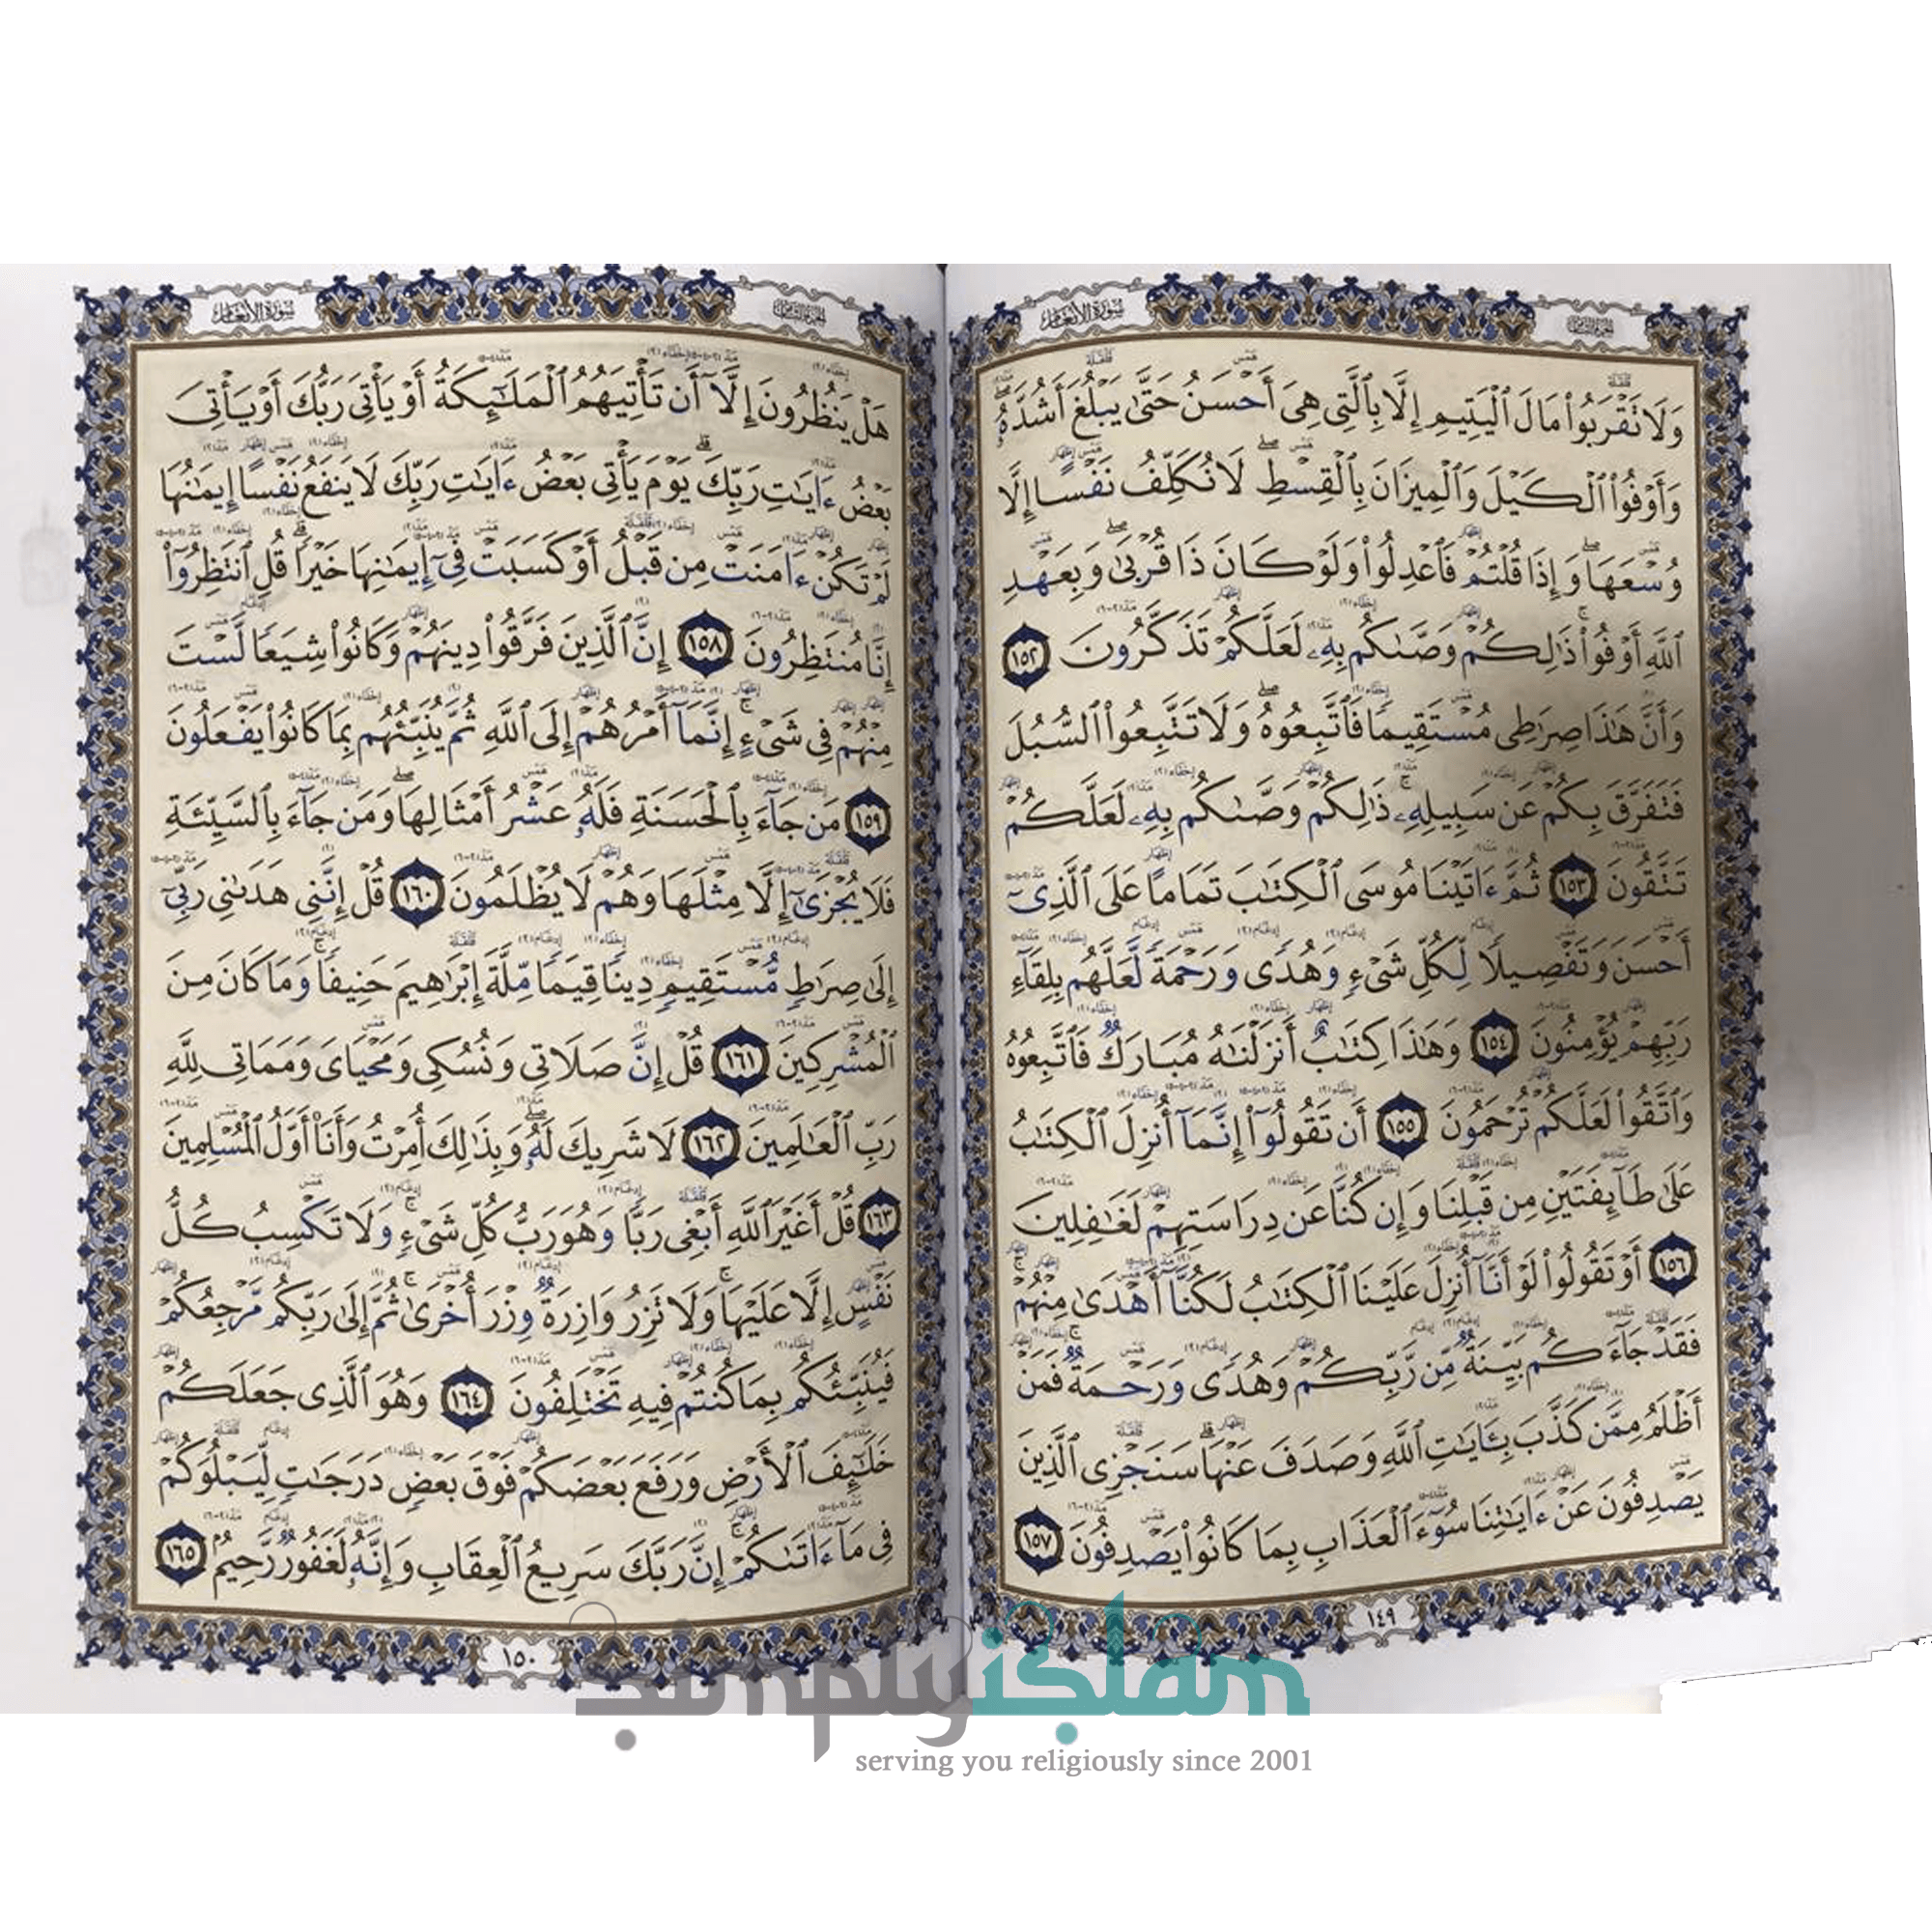 الجزء الثامن
سورة الأنعام
وَلَا تَقْرَبُوا۟ مَالَ ٱلْيَتِيمِ إِلَّا بِٱلَّتِى هِىَ أَحْسَنُ حَتَّىٰ يَبْلُغَ أَشُدَّهُۥ
وَأَوْفُوا۟ ٱلْكَيْلَ وَٱلْمِيزَانَ بِٱلْقِسْطِ ۖ لَا نُكَلِّفُ نَفْسًا إِلَّا
وُسْعَهَا ۖ وَإِذَا قُلْتُمْ فَٱعْدِلُوا۟ وَلَوْ كَانَ ذَا قُرْبَىٰ ۖ وَبِعَهْدِ
ٱللَّهِ أَوْفُوا۟ ۚ ذَٰلِكُمْ وَصَّىٰكُم بِهِۦ لَعَلَّكُمْ تَذَكَّرُونَ ١٥٢
وَأَنَّ هَٰذَا صِرَٰطِى مُسْتَقِيمًا فَٱتَّبِعُوهُ ۖ وَلَا تَتَّبِعُوا۟ ٱلسُّبُلَ
فَتَفَرَّقَ بِكُمْ عَن سَبِيلِهِۦ ۚ ذَٰلِكُمْ وَصَّىٰكُم بِهِۦ لَعَلَّكُمْ
تَتَّقُونَ ١٥٣ ثُمَّ ءَاتَيْنَا مُوسَى ٱلْكِتَٰبَ تَمَامًا عَلَى ٱلَّذِىٓ
أَحْسَنَ وَتَفْصِيلًا لِّكُلِّ شَىْءٍ وَهُدًى وَرَحْمَةً لَّعَلَّهُم بِلِقَآءِ
رَبِّهِمْ يُؤْمِنُونَ ١٥٤ وَهَٰذَا كِتَٰبٌ أَنزَلْنَٰهُ مُبَارَكٌ فَٱتَّبِعُوهُ
وَٱتَّقُوا۟ لَعَلَّكُمْ تُرْحَمُونَ ١٥٥ أَن تَقُولُوٓا۟ إِنَّمَآ أُنزِلَ ٱلْكِتَٰبُ
عَلَىٰ طَآئِفَتَيْنِ مِن قَبْلِنَا وَإِن كُنَّا عَن دِرَاسَتِهِمْ لَغَٰفِلِينَ
١٥٦ أَوْ تَقُولُوا۟ لَوْ أَنَّآ أُنزِلَ عَلَيْنَا ٱلْكِتَٰبُ لَكُنَّآ أَهْدَىٰ مِنْهُمْ ۚ
فَقَدْ جَآءَكُم بَيِّنَةٌ مِّن رَّبِّكُمْ وَهُدًى وَرَحْمَةٌ ۚ فَمَنْ
أَظْلَمُ مِمَّن كَذَّبَ بِـَٔايَٰتِ ٱللَّهِ وَصَدَفَ عَنْهَا ۗ سَنَجْزِى ٱلَّذِينَ
يَصْدِفُونَ عَنْ ءَايَٰتِنَا سُوٓءَ ٱلْعَذَابِ بِمَا كَانُوا۟ يَصْدِفُونَ ١٥٧
١٤٩
الجزء الثامن
سورة الأنعام
هَلْ يَنظُرُونَ إِلَّآ أَن تَأْتِيَهُمُ ٱلْمَلَٰٓئِكَةُ أَوْ يَأْتِىَ رَبُّكَ أَوْ يَأْتِىَ
بَعْضُ ءَايَٰتِ رَبِّكَ ۗ يَوْمَ يَأْتِى بَعْضُ ءَايَٰتِ رَبِّكَ لَا يَنفَعُ نَفْسًا إِيمَٰنُهَا
لَمْ تَكُنْ ءَامَنَتْ مِن قَبْلُ أَوْ كَسَبَتْ فِىٓ إِيمَٰنِهَا خَيْرًا ۗ قُلِ ٱنتَظِرُوٓا۟
إِنَّا مُنتَظِرُونَ ١٥٨ إِنَّ ٱلَّذِينَ فَرَّقُوا۟ دِينَهُمْ وَكَانُوا۟ شِيَعًا لَّسْتَ
مِنْهُمْ فِى شَىْءٍ ۚ إِنَّمَآ أَمْرُهُمْ إِلَى ٱللَّهِ ثُمَّ يُنَبِّئُهُم بِمَا كَانُوا۟ يَفْعَلُونَ
١٥٩ مَن جَآءَ بِٱلْحَسَنَةِ فَلَهُۥ عَشْرُ أَمْثَالِهَا ۖ وَمَن جَآءَ بِٱلسَّيِّئَةِ
فَلَا يُجْزَىٰٓ إِلَّا مِثْلَهَا وَهُمْ لَا يُظْلَمُونَ ١٦٠ قُلْ إِنَّنِى هَدَىٰنِى رَبِّىٓ
إِلَىٰ صِرَٰطٍ مُّسْتَقِيمٍ دِينًا قِيَمًا مِّلَّةَ إِبْرَٰهِيمَ حَنِيفًا ۚ وَمَا كَانَ مِنَ
ٱلْمُشْرِكِينَ ١٦١ قُلْ إِنَّ صَلَاتِى وَنُسُكِى وَمَحْيَاىَ وَمَمَاتِى لِلَّهِ
رَبِّ ٱلْعَٰلَمِينَ ١٦٢ لَا شَرِيكَ لَهُۥ ۖ وَبِذَٰلِكَ أُمِرْتُ وَأَنَا۠ أَوَّلُ ٱلْمُسْلِمِينَ
١٦٣ قُلْ أَغَيْرَ ٱللَّهِ أَبْغِى رَبًّا وَهُوَ رَبُّ كُلِّ شَىْءٍ ۚ وَلَا تَكْسِبُ كُلُّ
نَفْسٍ إِلَّا عَلَيْهَا ۚ وَلَا تَزِرُ وَازِرَةٌ وِزْرَ أُخْرَىٰ ۚ ثُمَّ إِلَىٰ رَبِّكُم مَّرْجِعُكُمْ
فَيُنَبِّئُكُم بِمَا كُنتُمْ فِيهِ تَخْتَلِفُونَ ١٦٤ وَهُوَ ٱلَّذِى جَعَلَكُمْ
خَلَٰٓئِفَ ٱلْأَرْضِ وَرَفَعَ بَعْضَكُمْ فَوْقَ بَعْضٍ دَرَجَٰتٍ لِّيَبْلُوَكُمْ
فِى مَآ ءَاتَىٰكُمْ ۗ إِنَّ رَبَّكَ سَرِيعُ ٱلْعِقَابِ وَإِنَّهُۥ لَغَفُورٌ رَّحِيمٌ ١٦٥
١٥٠
simplyislam
serving you religiously since 2001